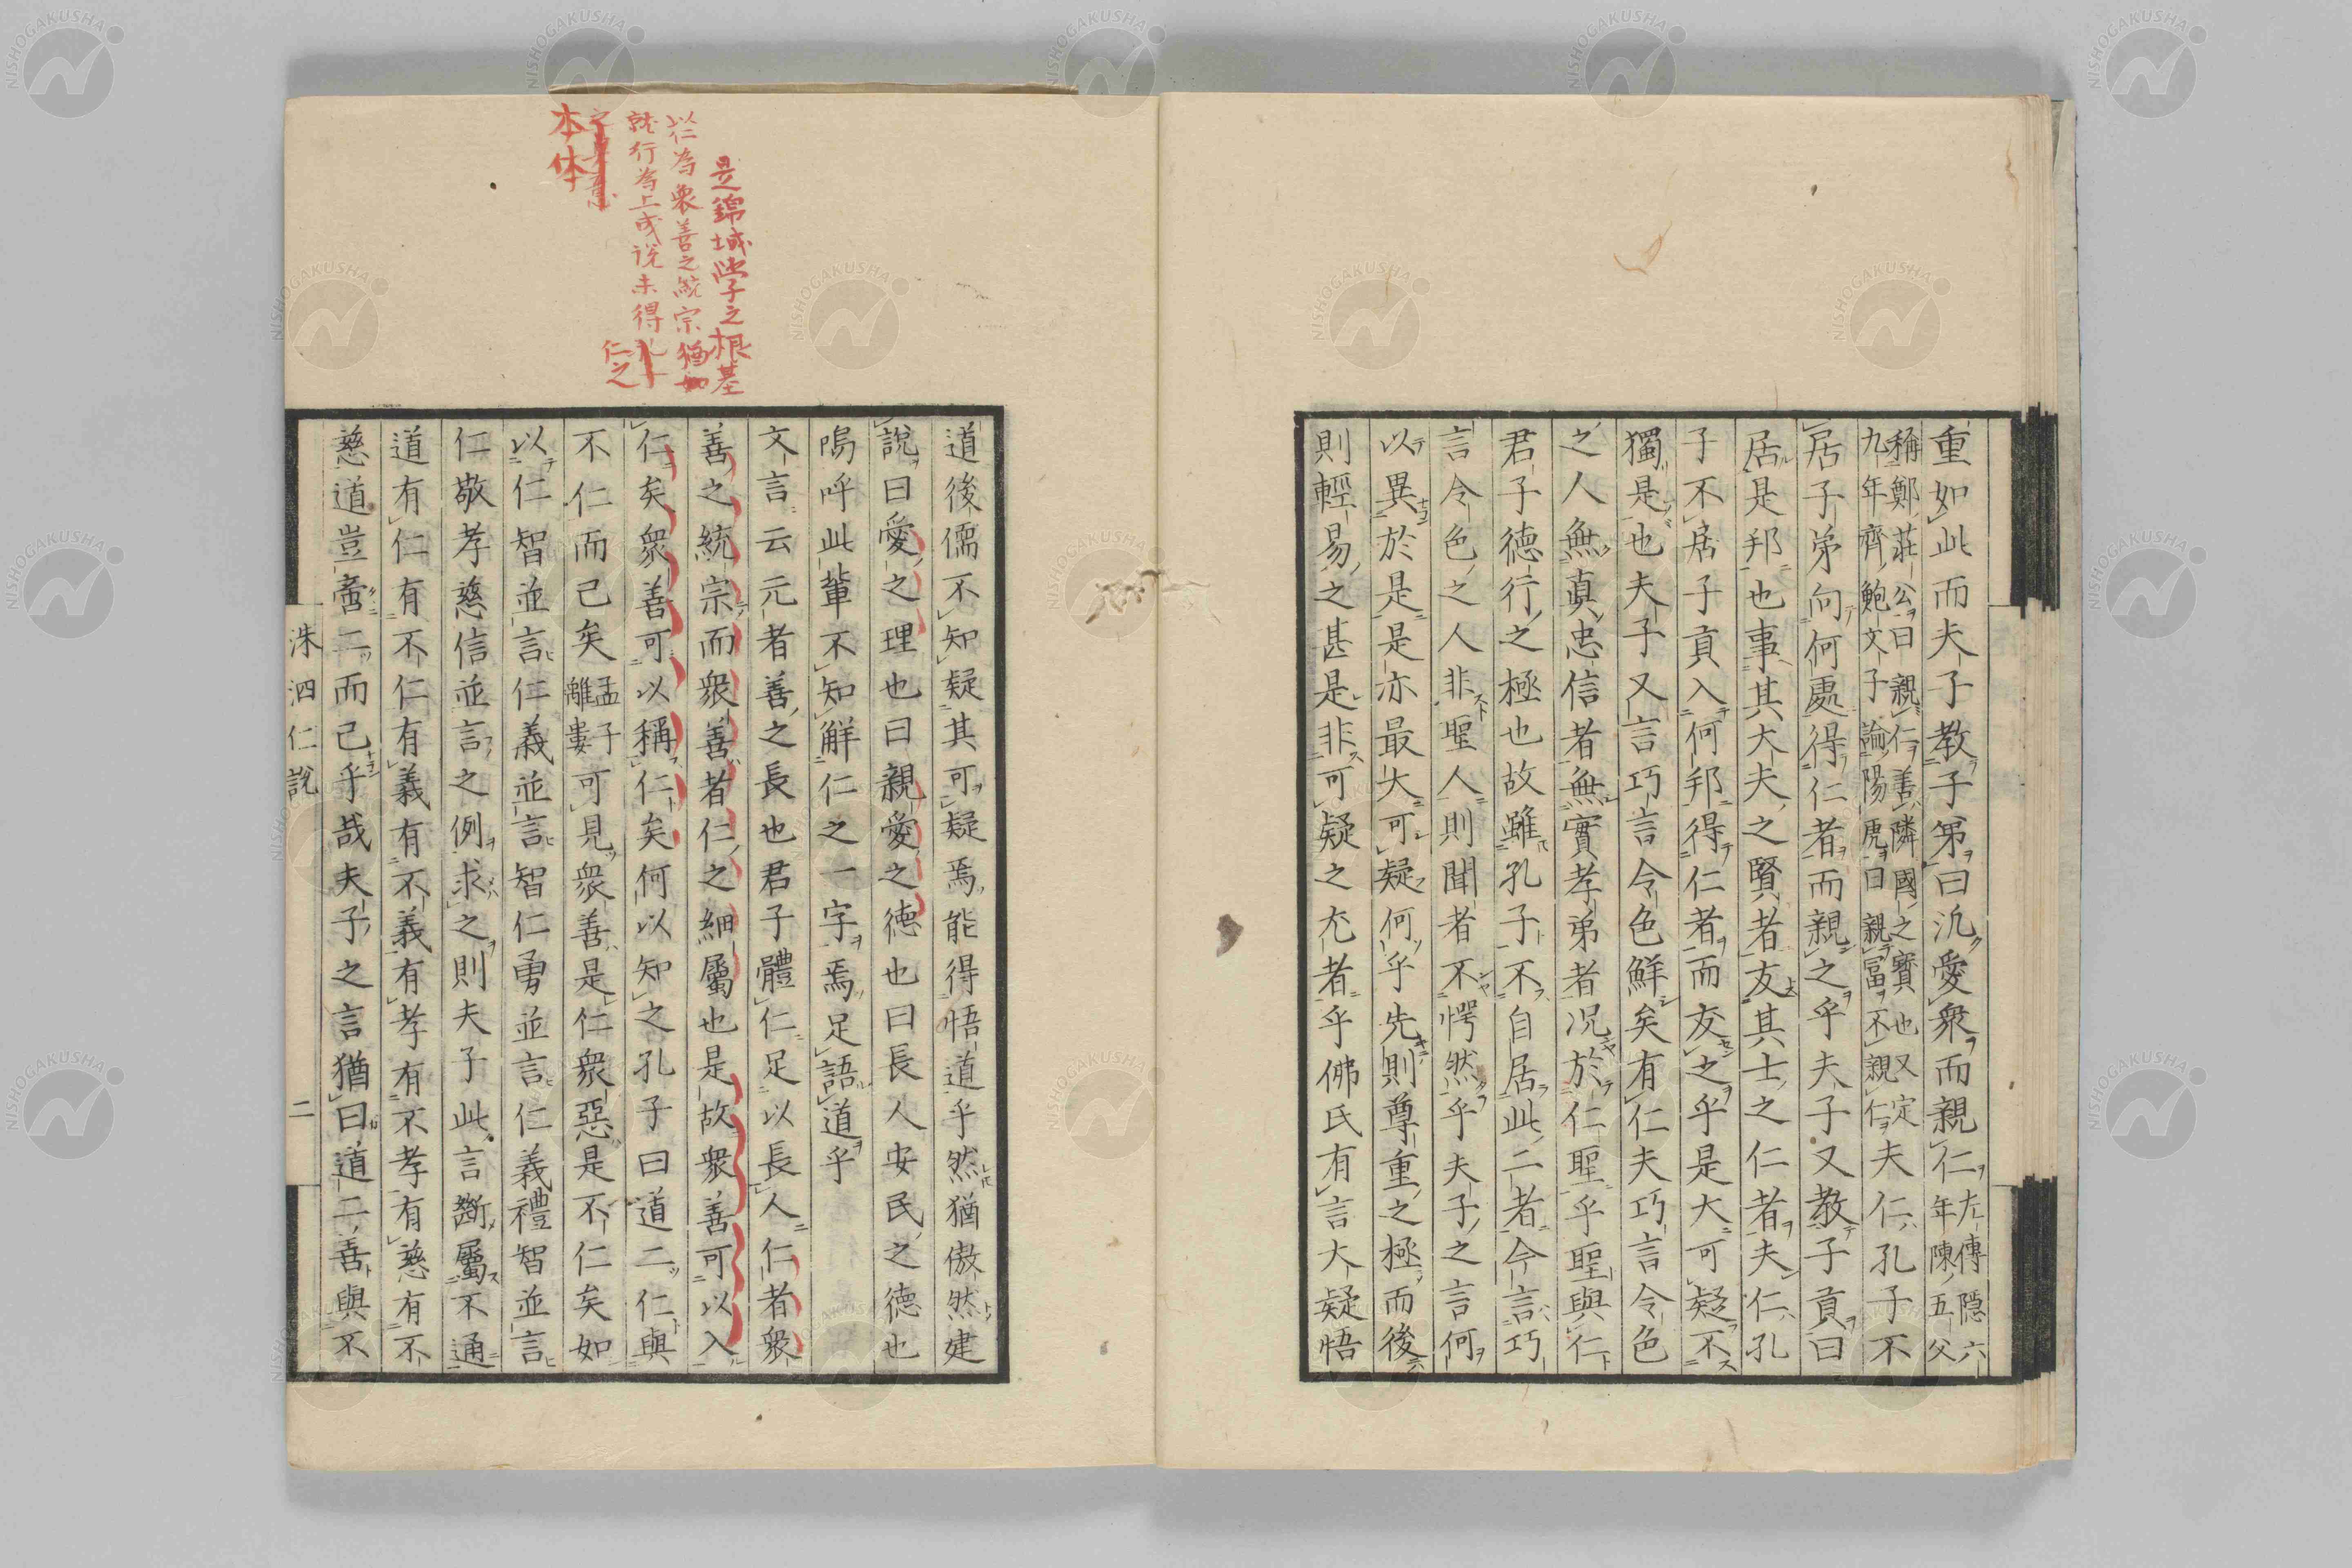 重如此而夫子教子弟曰汎愛衆而親仁左傳隱六年陳五父
稱鄭莊公曰親仁善隣國之寶也又定九年齊鮑文子論陽虎曰親冨不親仁夫仁孔子不
居子弟向何處得仁者而親之乎夫子又教子貢曰
居是邦也事其大夫之賢者友其士之仁者夫仁孔
子不居子貢入何邦得仁者而友之乎是大可疑不
獨是也夫子又言巧言令色鮮矣有仁夫巧言令色
之人無眞忠信者無實孝弟者况於仁聖乎聖與仁
君子德行之極也故雖孔子不自居此二者今言巧
言令色之人非聖人則聞者不愕然乎夫子之言何
以異於是是亦最大可疑何乎先則尊重之極而後
則輕易之甚是非可疑之尤者乎佛氏有言大疑悟
道後儒不知疑其可疑焉能得悟道乎然猶傲然建
說曰愛之理也曰親愛之德也曰長人安民之德也
嗚呼此輩不知解仁之一字焉足語道乎
文言云元者善之長也君子體仁足以長人仁者衆
善之統宗而衆善者仁之細屬也是故衆善可以入
仁矣衆善可以稱仁矣何以知之孔子曰道二仁與
不仁而已矣孟子離婁可見衆善是仁衆惡是不仁矣如
以仁智並言仁義並言智仁勇並言仁義禮智並言
仁敬孝慈信並言之例求之則夫子此言斷屬不通
道有仁有不仁有義有不義有孝有不孝有慈有不
慈道豈啻二而已乎哉夫子之言猶曰道二善與不
洙泗仁說
二
是錦城學子之根基
以仁為衆善之統宗猶如
就行為上或說未得
仁之
本体
NISHOGAKUSHA